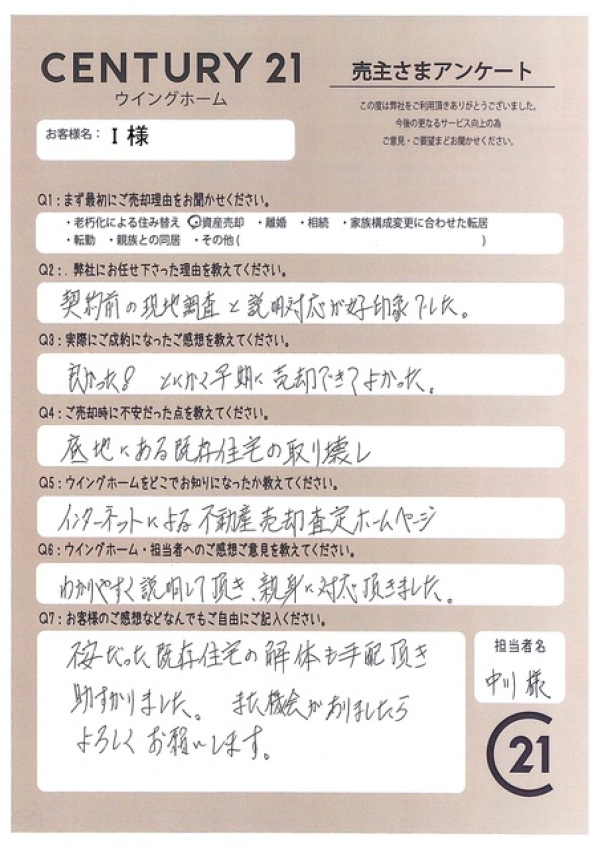 CENTURY 21
ウイングホーム
売主さまアンケート
この度は弊社をご利用頂きありがとうございました。
今後の更なるサービス向上の為
ご意見・ご要望まどお聞かせください。
お客様名： I 様
Q1：まず最初にご売却理由をお聞かせください。
・老朽化による住み替え ・資産売却 ・離婚 ・相続 ・家族構成変更に合わせた転居
・転勤 ・親族との同居 ・その他( )
Q2：. 弊社にお任せ下さった理由を教えてください。
契約前の現地調査と説明対応が好印象でした。
Q3：実際にご成約になったご感想を教えてください。
良かった8 とにかく早期に売却できてよかった。
Q4：ご売却時に不安だった点を教えてください。
底地にある既存住宅の取り壊し
Q5：ウイングホームをどこでお知りになったか教えてください。
インターネットによる不動産売却査定ホームページ
Q6：ウイングホーム・担当者へのご感想ご意見を教えてください。
わかりやすく説明して頂き、親身に対応頂きました。
Q7：お客様のご感想などなんでもご自由にご記入ください。
不安だった既存住宅の解体も手配頂き
助すかりました。 また機会がありましたら
よろしくお願いします。
担当者名
中川様
C21